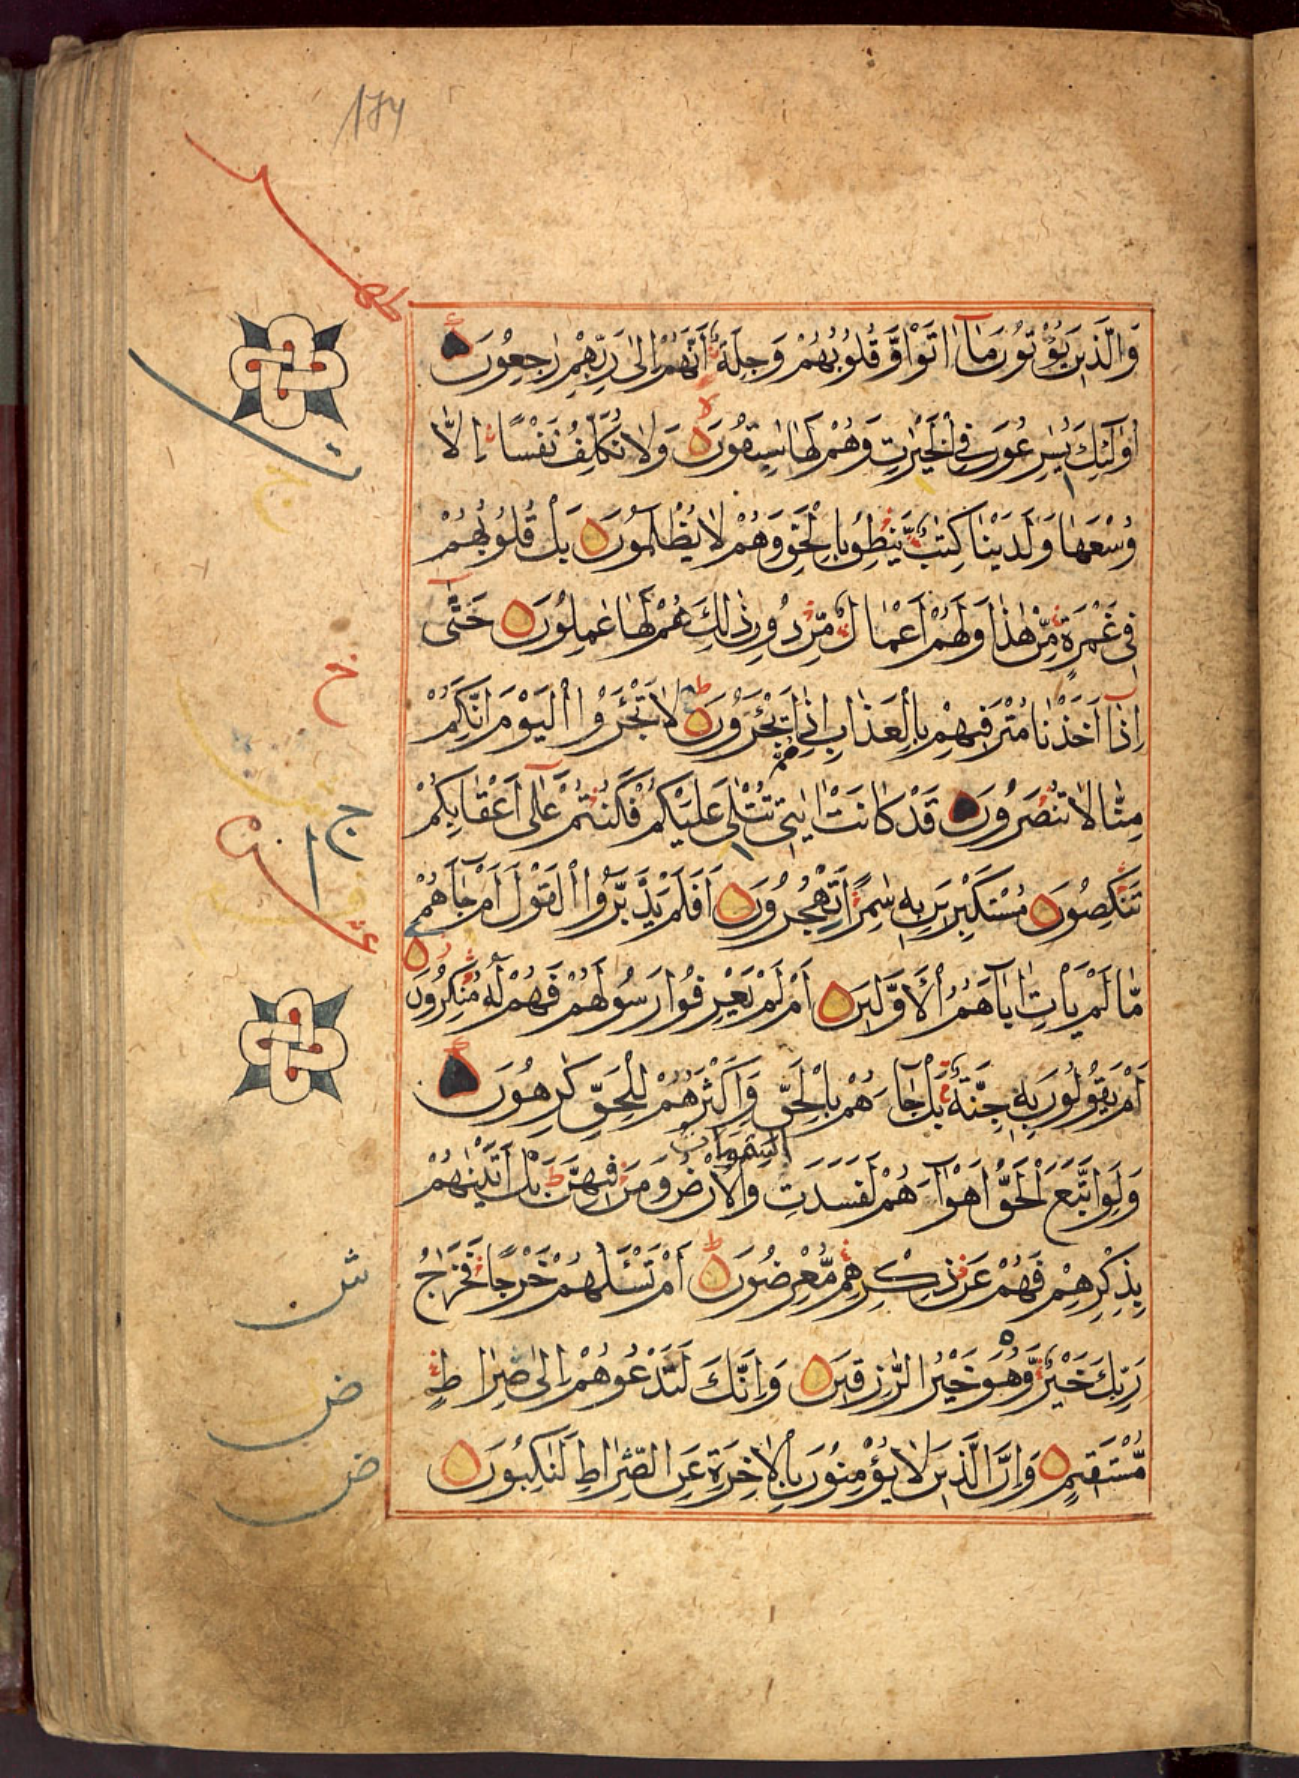 174
وَالَّذِينَ يُؤْتُونَ مَآ اٰتَوْا وَّقُلُوبُهُمْ وَجِلَةٌ اَنَّهُمْ اِلٰى رَبِّهِمْ رٰجِعُونَ
اُولٰئِكَ يُسٰرِعُونَ فِى الْخَيْرٰتِ وَهُمْ لَهَا سٰبِقُونَ وَلَا نُكَلِّفُ نَفْسًا اِلَّا
وُسْعَهَا وَلَدَيْنَا كِتٰبٌ يَّنْطِقُ بِالْحَقِّ وَهُمْ لَا يُظْلَمُونَ بَلْ قُلُوبُهُمْ
فِى غَمْرَةٍ مِّنْ هٰذَا وَلَهُمْ اَعْمَالٌ مِّنْ دُونِ ذٰلِكَ هُمْ لَهَا عٰمِلُونَ حَتّٰى
اِذَا اَخَذْنَا مُتْرَفِيهِمْ بِالْعَذَابِ اِذَا هُمْ يَجْئَرُونَ لَا تَجْئَرُوا الْيَوْمَ اِنَّكُمْ
مِنَّا لَا تُنْصَرُونَ قَدْ كَانَتْ اٰيٰتِى تُتْلٰى عَلَيْكُمْ فَكُنْتُمْ عَلٰٓى اَعْقَابِكُمْ
تَنْكِصُونَ مُسْتَكْبِرِينَ بِهٖ سٰمِرًا تَهْجُرُونَ اَفَلَمْ يَدَّبَّرُوا الْقَوْلَ اَمْ جَآهُمْ
مَّا لَمْ يَاْتِ اٰبَآهُمُ الْاَوَّلِينَ اَمْ لَمْ يَعْرِفُوا رَسُولَهُمْ فَهُمْ لَهٗ مُنْكِرُونَ
اَمْ يَقُولُونَ بِهٖ جِنَّةٌ بَلْ جَآءَهُمْ بِالْحَقِّ وَاَكْثَرُهُمْ لِلْحَقِّ كٰرِهُونَ
السَّمٰوَات
وَلَوِ اتَّبَعَ الْحَقُّ اَهْوَآءَهُمْ لَفَسَدَتِ وَالْاَرْضُ وَمَنْ فِيهِنَّ بَلْ اَتَيْنٰهُمْ
بِذِكْرِهِمْ فَهُمْ عَنْ ذِكْرِهِمْ مُّعْرِضُونَ اَمْ تَسْئَلُهُمْ خَرْجًا فَخَرَاجُ
رَبِّكَ خَيْرٌ وَّهُوَ خَيْرُ الرّٰزِقِينَ وَاِنَّكَ لَتَدْعُوهُمْ اِلٰى صِرَاطٍ
مُّسْتَقِيمٍ وَاِنَّ الَّذِينَ لَا يُؤْمِنُونَ بِالْاٰخِرَةِ عَنِ الصِّرَاطِ لَنٰكِبُونَ
خ
ج
ش
ض
ض